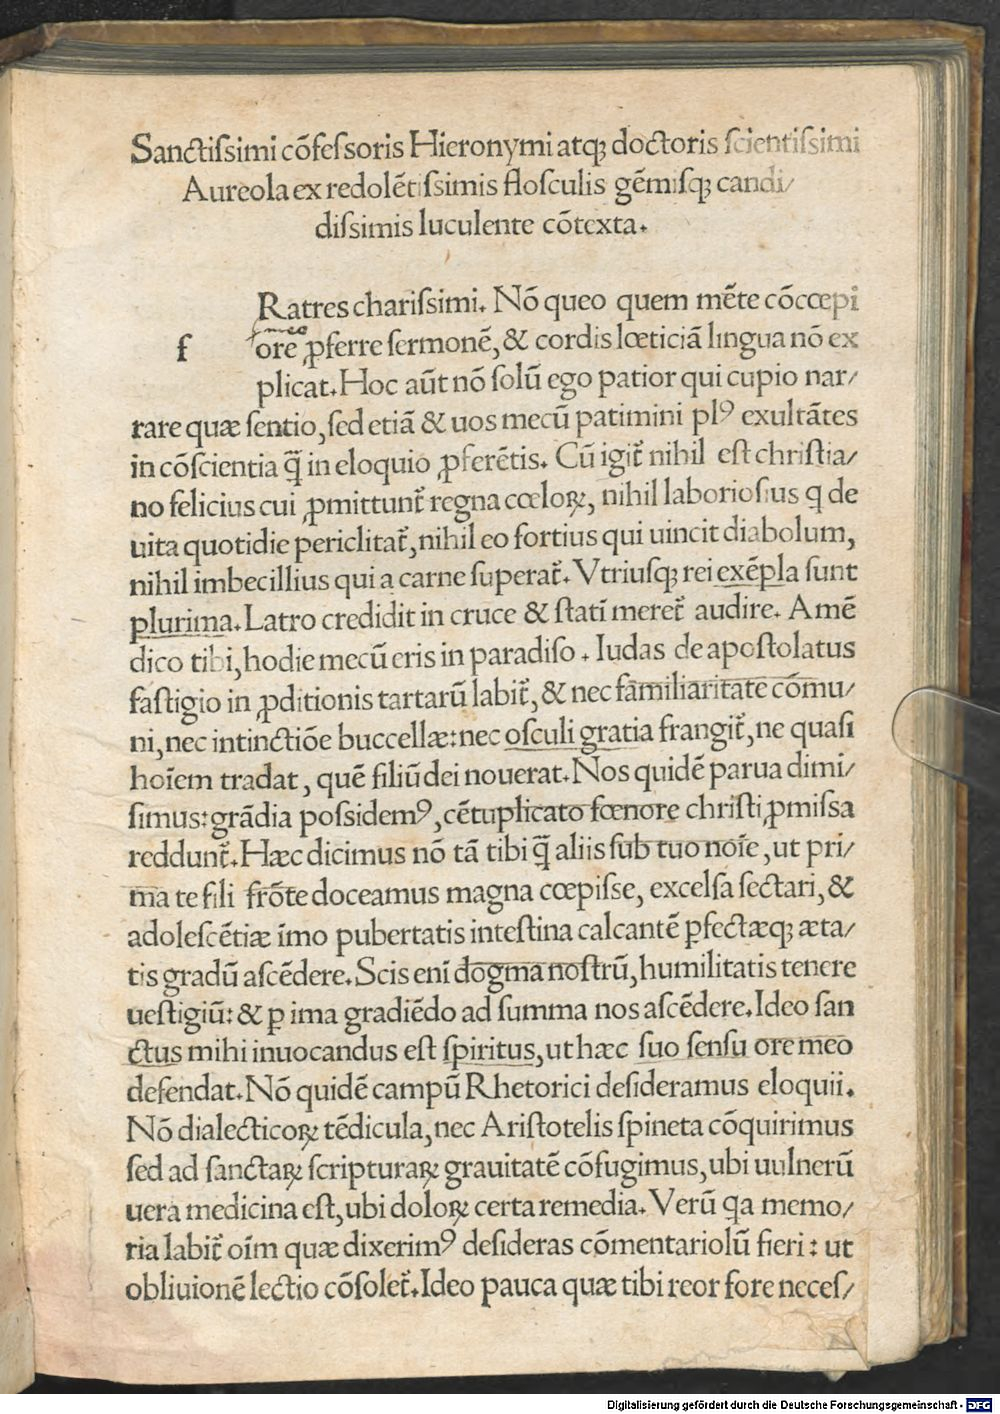 Sanctiſsimi cõfeſsoris Hieronymi atqꝫ doctoris ſcientiſsimi
Aureola ex redolẽtiſsimis floſculis gẽmiſqꝫ candi/
diſsimis luculente cõtexta.
Ratres chariſsimi. Nõ queo quem mẽte cõcœpi
meo
f ore ꝓferre ſermonẽ, & cordis lœticiã lingua nõ ex
plicat. Hoc aũt nõ ſolũ ego patior qui cupio nar/
rare quæ ſentio, ſed etiã & uos mecũ patimini plꝰ exultãtes
in cõſcientia q̃ in eloquio ꝓferẽtis. Cũ igit̃ nihil eſt chriſtia/
no felicius cui ꝓmittunt̃ regna cœloꝝ, nihil laborioſius q̃ de
uita quotidie periclitat̃, nihil eo fortius qui uincit diabolum,
nihil imbecillius qui a carne ſuperat̃. Vtriuſqꝫ rei exẽpla ſunt
plurima. Latro credidit in cruce & ſtatĩ meret̃ audire. Amẽ
dico tibi, hodie mecũ eris in paradiſo. Iudas de apoſtolatus
faſtigio in ꝓditionis tartarũ labit̃, & nec familiaritate cõmu/
ni, nec intinctiõe buccellæ: nec oſculi gratia frangit̃, ne quaſi
hoĩem tradat, quẽ filiũ dei nouerat. Nos quidẽ parua dimi/
ſimus: grãdia poſsidemꝰ, cẽtuplicato fœnore chriſti ꝓmiſsa
reddunt̃. Hæc dicimus nõ tã tibi q̃ aliis ſub tuo noĩe, ut pri/
ma te fili frõte doceamus magna cœpiſse, excelſa ſectari, &
adoleſcẽtiæ ĩmo pubertatis inteſtina calcantẽ ꝑfectæqꝫ æta/
tis gradũ aſcẽdere. Scis enĩ dogma noſtrũ, humilitatis tenere
ueſtigiũ: & ꝑ ima gradiẽdo ad ſumma nos aſcẽdere. Ideo ſan
ctus mihi inuocandus eſt ſpiritus, ut hæc ſuo ſenſu ore meo
defendat. Nõ quidẽ campũ Rhetorici deſideramus eloquii.
Nõ dialecticoꝝ tẽdicula, nec Ariſtotelis ſpineta cõquirimus
ſed ad ſanctaꝝ ſcripturaꝝ grauitatẽ cõfugimus, ubi uulnerũ
uera medicina eſt, ubi doloꝝ certa remedia. Verũ q̃a memo/
ria labit̃ oĩm quæ dixerimꝰ deſideras cõmentariolũ fieri: ut
obliuionẽ lectio cõſolet̃. Ideo pauca quæ tibi reor fore neceſ/
Digitalisierung gefördert durch die Deutsche Forschungsgemeinschaft - DFG